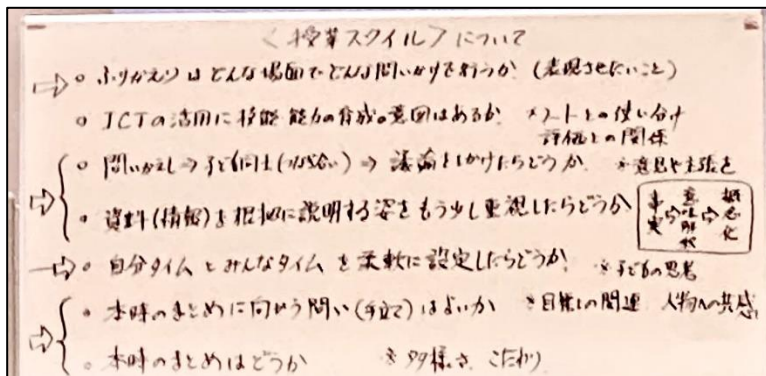 〈授業スタイル〉について
⇨ ○ ふりかえりはどんな場面でどんな問いかけを行うか (表現させたいこと)
○ ICTの活用に技能 能力の育成の意図はあるか ※ノートとの使い分け
評価との関係
⇨ ○ 問いかえし⇒子ども同士(つなぎ合い)⇒ 議論をしかけたらどうか ※意見や主張を
○ 資料(情報)を根拠に説明する姿をもう少し重視したらどうか
事実⇨意味解釈⇨概念化
⇨ ○ 自分タイムとみんなタイムを柔軟に設定したらどうか ※子どもの思考
⇨ ○ 本時のまとめに向かう問い(手立て)はよいか ※目標との関連 人物への共感
○ 本時のまとめはどうか ※多様さ こだわり